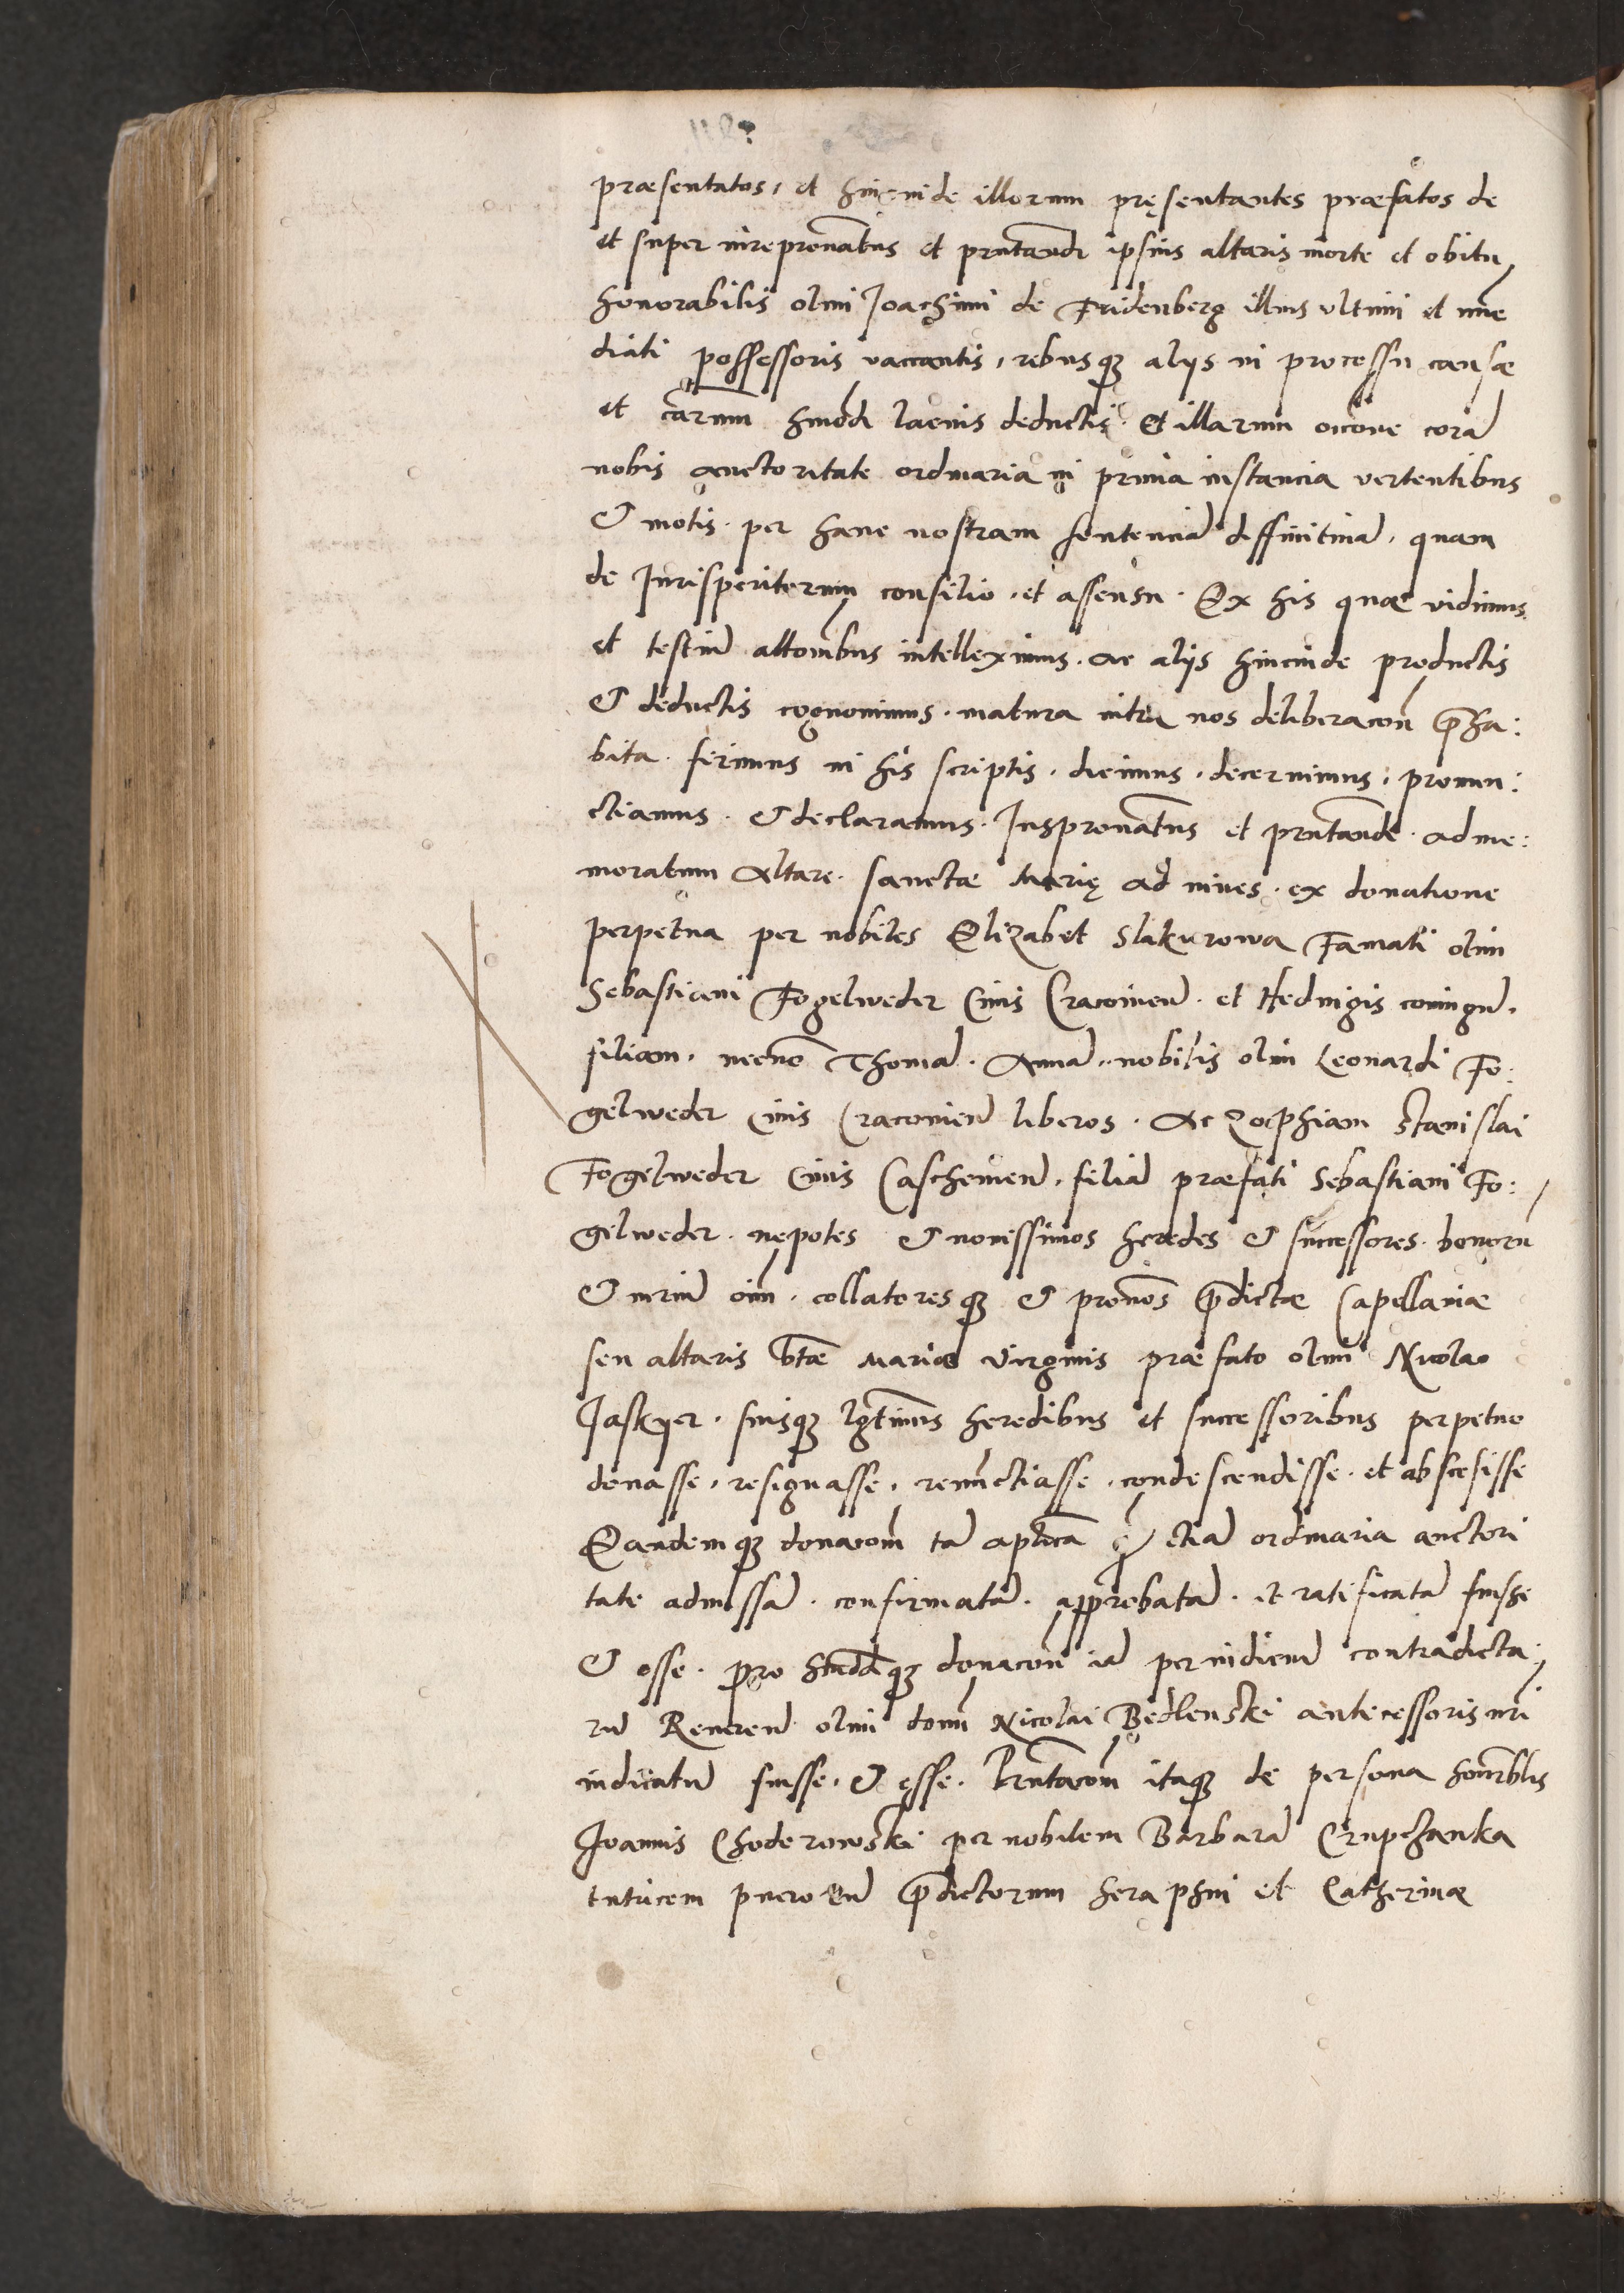 præsentatos, et hincinde illorum pręsentantes præfatos de
et super iurepronatus et pntandi ipsius altaris morte et obitu
honorabilis olim Joachimi de Fridenberg illius ultimi et imme
diati possessoris vaccantis, rebusque alijs in processu causæ
et carum hmodi lacius deductis. Et illarum occone cora
nobis auctoritate ordinaria in prima instancia vertentibus
& motis. per hanc nostram sentencia diffinitiua, quam
de Jurisperitorum consilio, et assensu. Ex his quæ vidimus
et testiu attonibus intelleximus. ac alijs hincinde productis
& deductis cognouimus. matura intra nos deliberacon præha:
bita. ferimus in his scriptis, dicimus, decernimus, pronun:
ctiamus. & declaramus. Juspronatus et pntandi. ad me:
moratum Altare. sanctæ Marię ad niues. ex donatione
perpetua per nobiles Elizabet Slakurowa Famati olim
Sebastiani Fogelweder Ciuis Cracouien. et Hedwigis coniugu.
filiam, necno Thoma. Anna. nobilis olim Leonardi Fo:
gelweder Ciuis Cracouien liberos. Ac Zophiam Stanislai
Fogelweder Ciuis Caschouien. filia præfati Sebastiani Fo:
gelweder. nepotes & nouissimos heredes & successores. bonoru
& iuriu oim. collatoresque & pronos prædictæ Capellaniæ
seu altaris btæ Mariæ Virginis præfato olim Nicolao
Jaskyer. suisque lgtimis heredibus et successoribus perpetuo
donasse, resignasse, renunctiasse, condescendisse. et abscesisse
Eandemque donacom tam aplica etia ordinaria auctori
tate admissa. confirmata. approbata. et ratificata fuisse
& esse. pro donacon per iudiciu contradicta:
ru Reueren olim domi Nicolai Bedlenski antecessoris nri
indicatu fuisse. & esse. Pntacom itaque de persona honrblis
Joannis Choderowski per nobilem Barbara Crupczanka
tutricem pueroru prædictorum Seraphini et Catherinæ